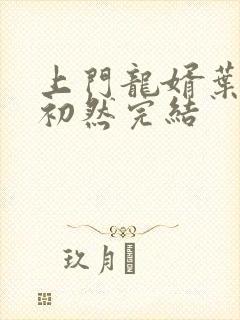 上門龍婿葉
初然完結
玖月